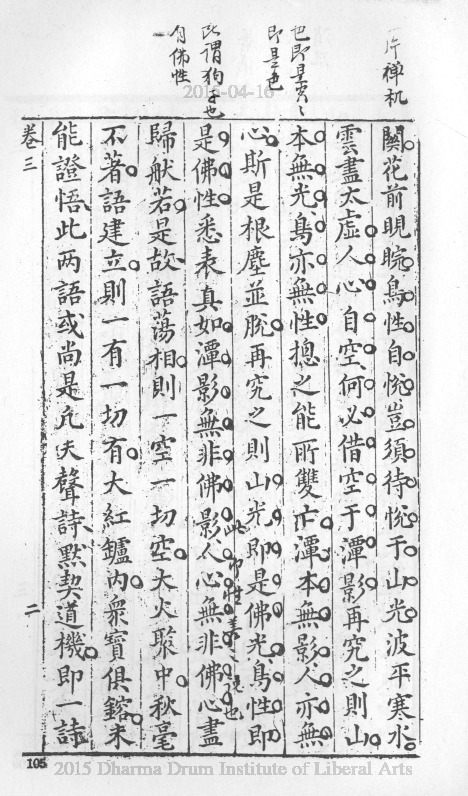 片禅机
也即是空
即是色
所谓狗子也
有佛性
關花前睍睆鳥性自悅豈須待悅于山光波平寒水
雲盡太虛人心自空何必借空于潭影再究之則山
本無光鳥亦無性揔之能所雙亡潭本無影人亦無
心斯是根塵並脫再究之則山光即是佛光鳥性即
是佛性悉表真如潭影無非佛影人心無非佛心盡
歸般若是故語蕩相則一空一切空大火聚中秋毫
不著語建立則一有一切有大紅鑪內衆寶俱鎔未
能證悟此两語或尚是凡夫聲詩黙契道機即一詩
卷三
二
105
2015-04-16
2015 Dharma Drum Institute of Liberal Arts